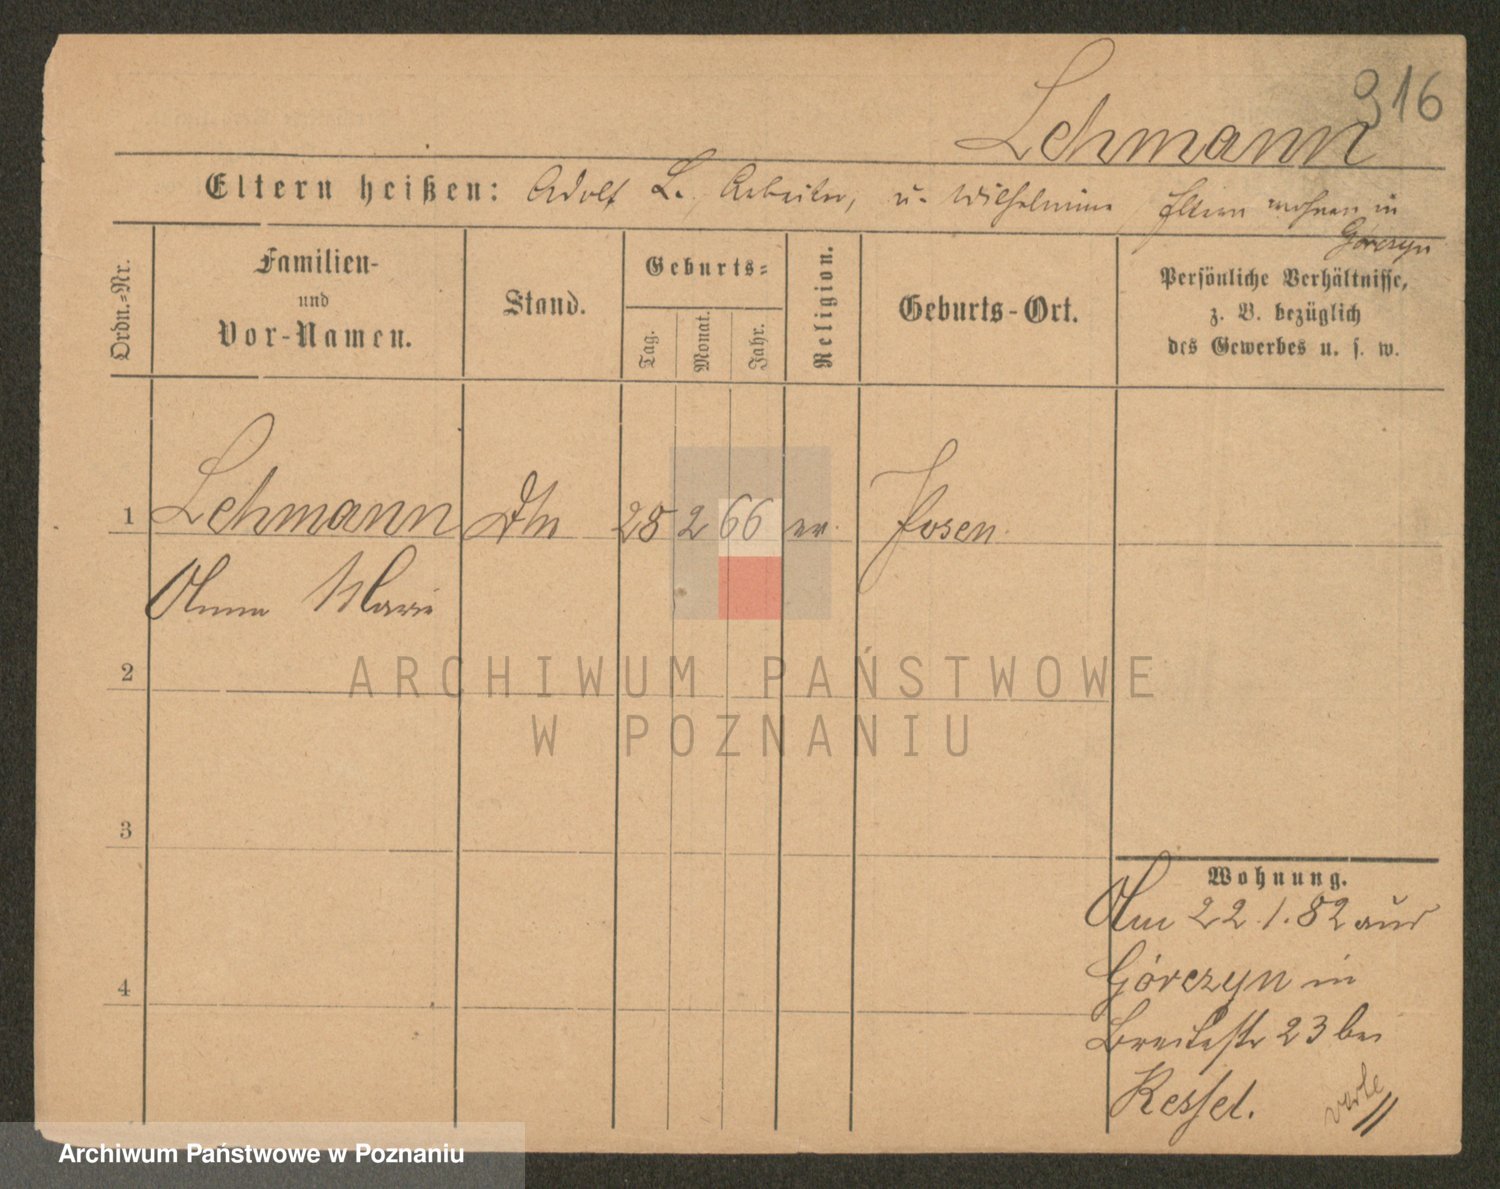 316
Lehmann
Eltern heißen: Adolf L., Arbeiter, u. Wilhelmine Eltern wohnen in
Górczyn
Ordn.=Nr.
Familien-
und
Vor-Namen.
Stand.
Geburts=
Tag.
Monat.
Jahr.
Religion.
Geburts-Ort.
Persönliche Verhältnisse,
z. B. bezüglich
des Gewerbes u. s. w.
1 Lehmann 28 2 66 ev. Posen
Anna Marie
2
3
4
Wohnung.
Am 22.1.82 aus
Górczyn in
Breitestr 23 bei
Kessel.
verte
ARCHIWUM PAŃSTWOWE
W POZNANIU
Archiwum Państwowe w Poznaniu